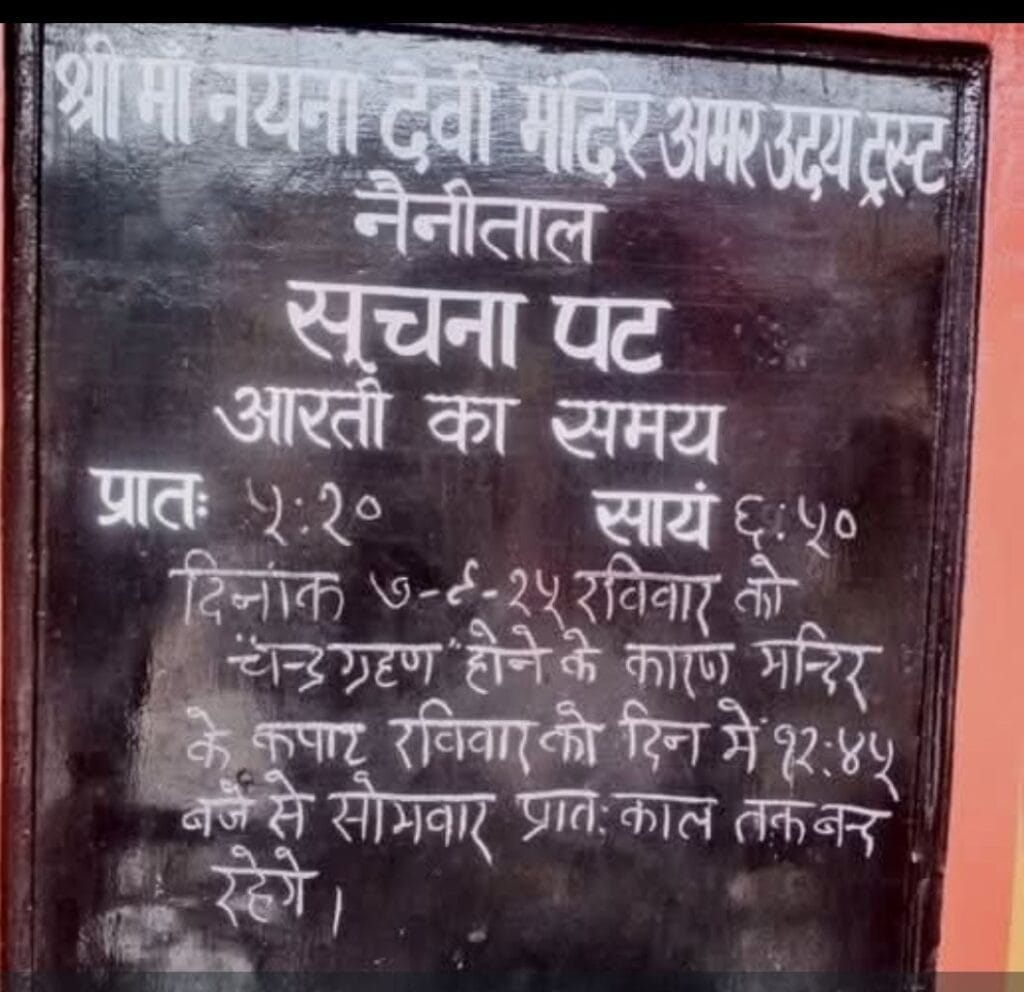 श्री माँ नयना देवी मंदिर अमर उदय ट्रस्ट
नैनीताल
सूचना पट
आरती का समय
प्रातः ५:२० सायं ६:५०
दिनांक ७-९-२५ रविवार को
"चन्द्रग्रहण" होने के कारण मन्दिर
के कपाट रविवार को दिन में १२:४५
बजे से सोमवार प्रात: काल तक बन्द
रहेगे।